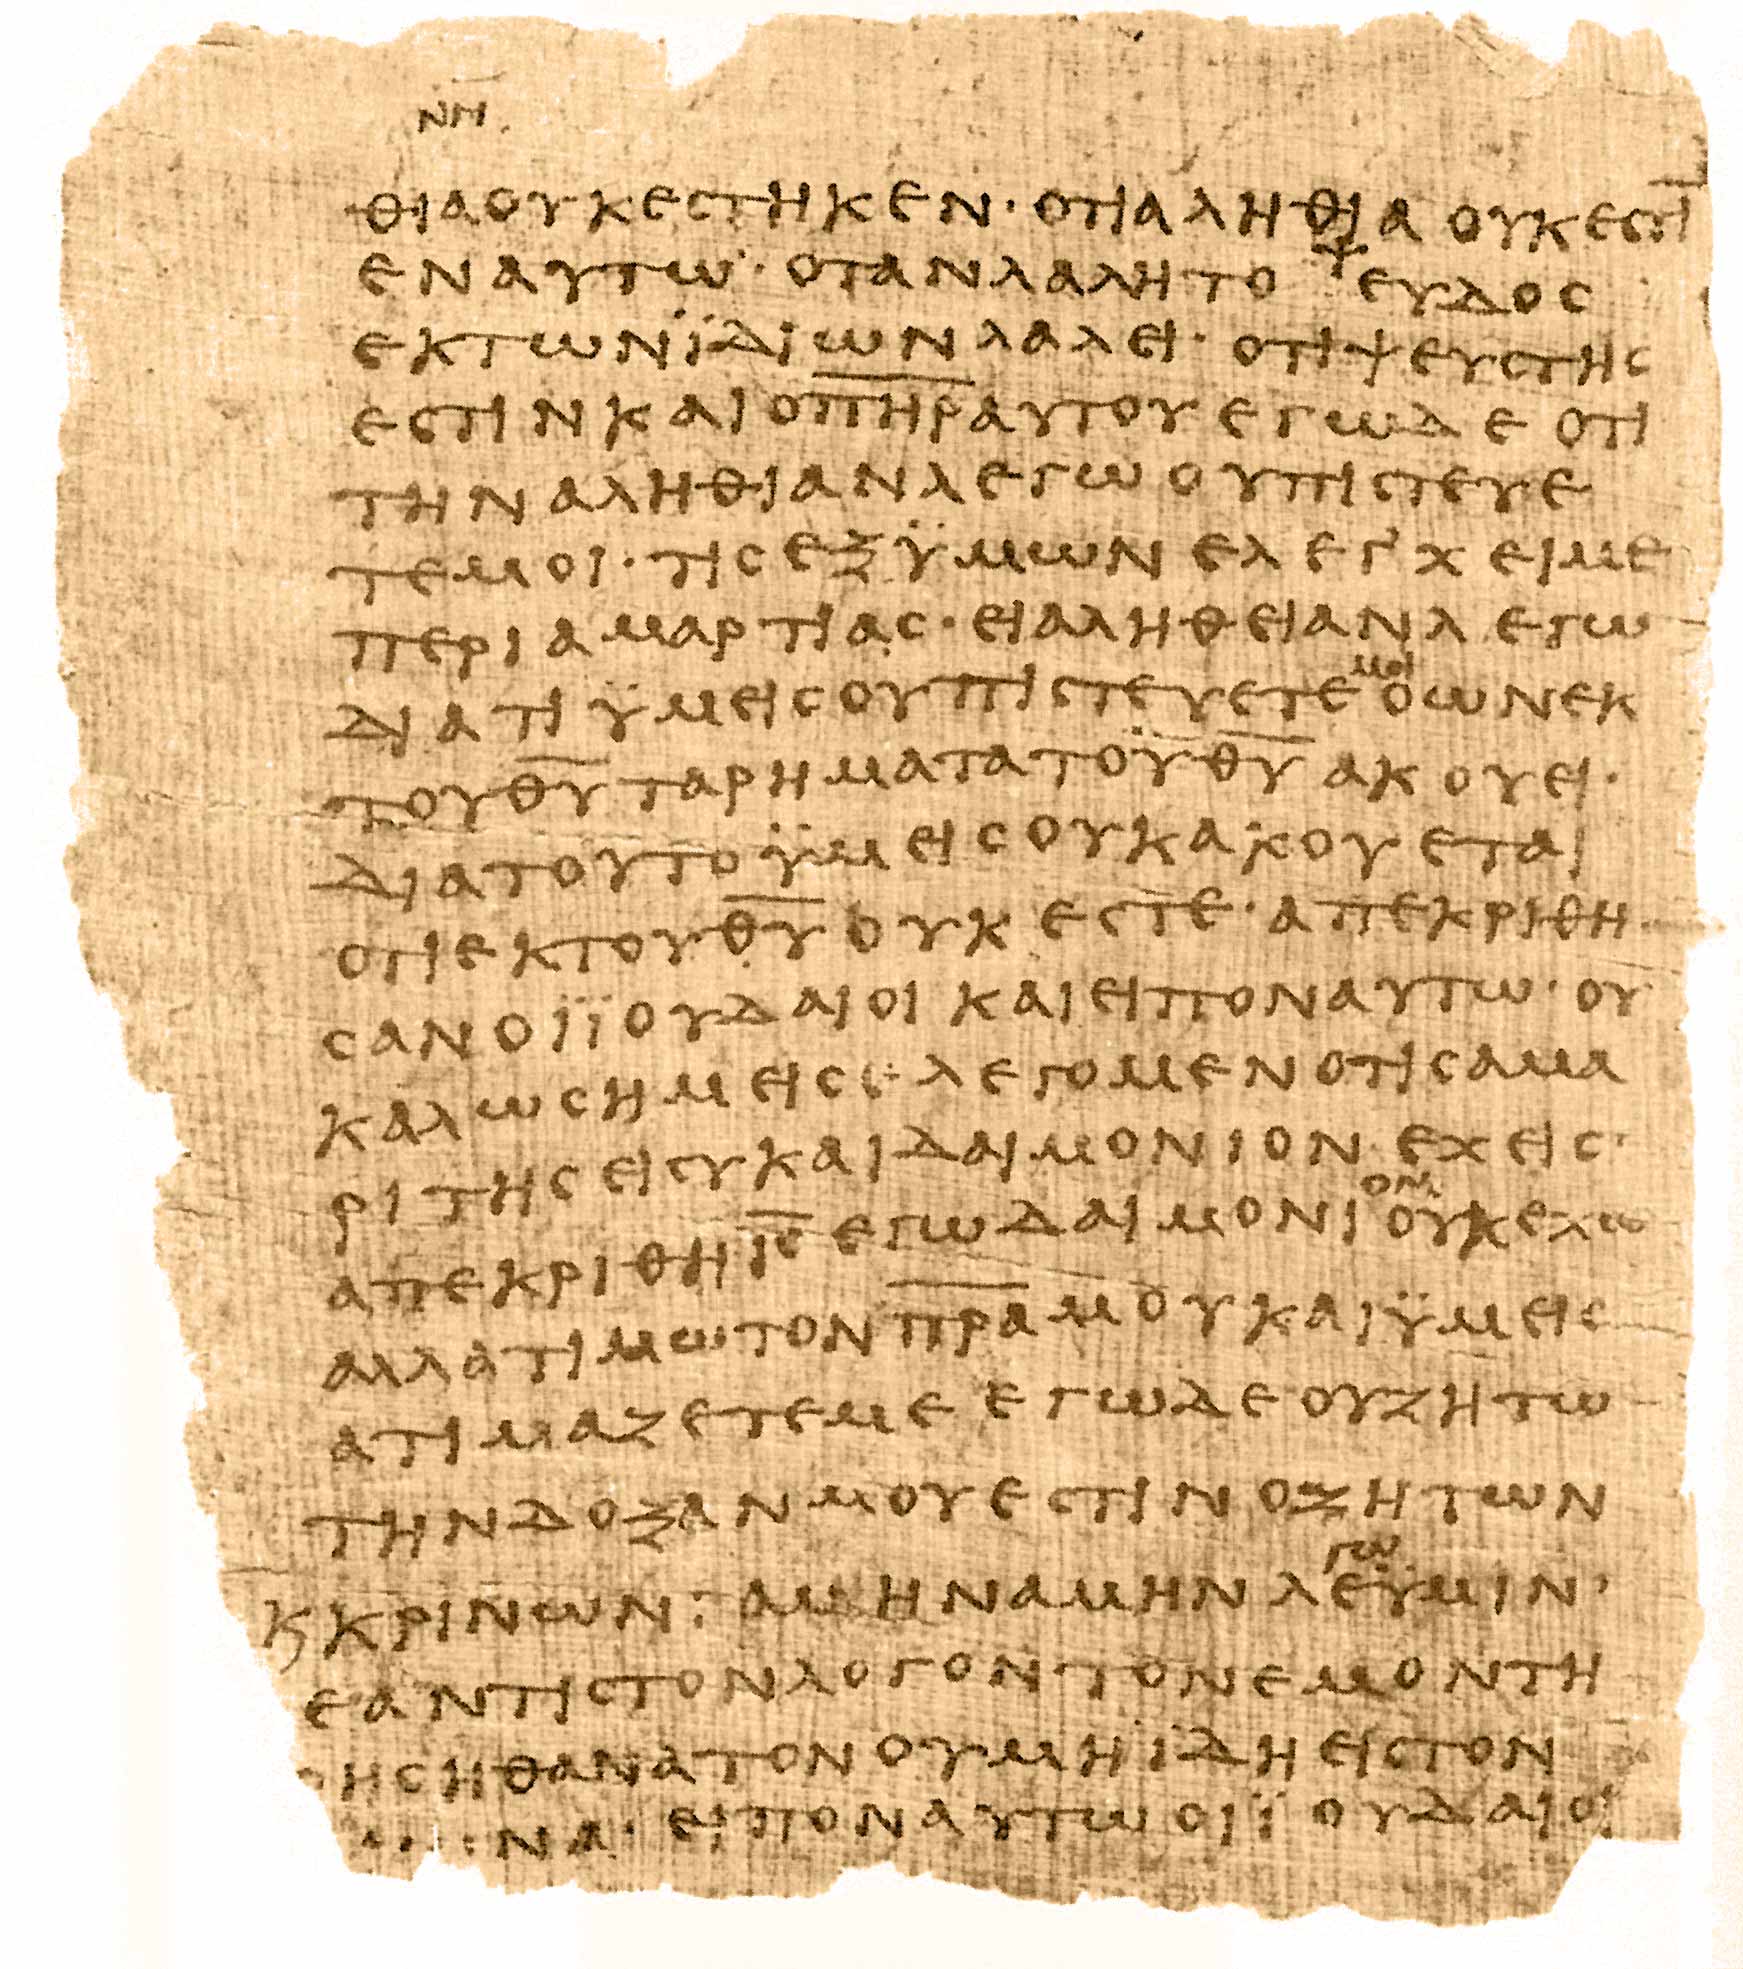 ΝΗ
ΘΙΑΟΥΚΕϹΤΗΚΕΝ· ΟΤΙΑΛΗΘΙΑΟΥΚΕϹΤΙ
ΕΝΑΥΤΩ· ΟΤΑΝΛΑΛΗΤΟ ΨΕΥΔΟϹ
ΕΚΤΩΝΪΔΙΩΝΛΑΛΕΙ· ΟΤΙΨΕΥϹΤΗϹ
ΕϹΤΙΝΚΑΙΟΠ̅Η̅Ρ̅ΑΥΤΟΥΕΓΩΔΕΟΤΙ
ΤΗΝΑΛΗΘΙΑΝΛΕΓΩΟΥΠΙϹΤΕΥΕ
ΤΕΜΟΙ· ΤΙϹΕΞΫΜΩΝΕΛΕΓ'ΧΕΙΜΕ
ΠΕΡΙΑΜΑΡΤΙΑϹ· ΕΙΑΛΗΘΕΙΑΝΛΕΓΩ
ΔΙΑΤΙΫΜΕΙϹΟΥΠΙϹΤΕΥΕΤΕ ΜΟΙ ΟΩΝΕΚ
ΤΟΥΘ̅Υ̅ΤΑΡΗΜΑΤΑΤΟΥΘ̅Υ̅ΑΚΟΥΕΙ·
ΔΙΑΤΟΥΤΟΫΜΕΙϹΟΥΚΑΚΟΥΕΤΑΙ
ΟΤΙΕΚΤΟΥΘ̅Υ̅ΟΥΚΕϹΤΕ· ΑΠΕΚΡΙΘΗ
ϹΑΝΟΙΪΟΥΔΑΙΟΙΚΑΙΕΙΠΟΝΑΥΤΩ· ΟΥ
ΚΑΛΩϹΗΜΕΙϹ ΛΕΓΟΜΕΝΟΤΙϹΑΜΑ
ΡΙΤΗϹΕΙϹΥΚΑΙΔΑΙΜΟΝΙΟΝΕΧΕΙϹ·
ΑΠΕΚΡΙΘΗΙ̅Ϲ̅ΕΓΩΔΑΙΜΟΝΙΟΝΟΥΚΕΧΩ
ΑΛΛΑΤΙΜΩΤΟΝΠ̅Ρ̅Α̅ΜΟΥΚΑΙΫΜΕΙϹ
ΑΤΙΜΑΖΕΤΕΜΕΕΓΩΔΕΟΥΖΗΤΩ
ΤΗΝΔΟΞΑΝΜΟΥΕϹΤΙΝΟΖΗΤΩΝ
Κ ΚΡΙΝΩΝ: ΑΜΗΝΑΜΗΝΛΕΓΩΫΜΙΝ·
ΕΑΝΤΙϹΤΟΝΛΟΓΟΝΤΟΝΕΜΟΝΤΗ
ΡΗϹΗΘΑΝΑΤΟΝΟΥΜΗΪΔΗΕΙϹΤΟΝ
ΝΑ· ΕΙΠΟΝΑΥΤΩΟΙΪΟΥΔΑΙΟΙ